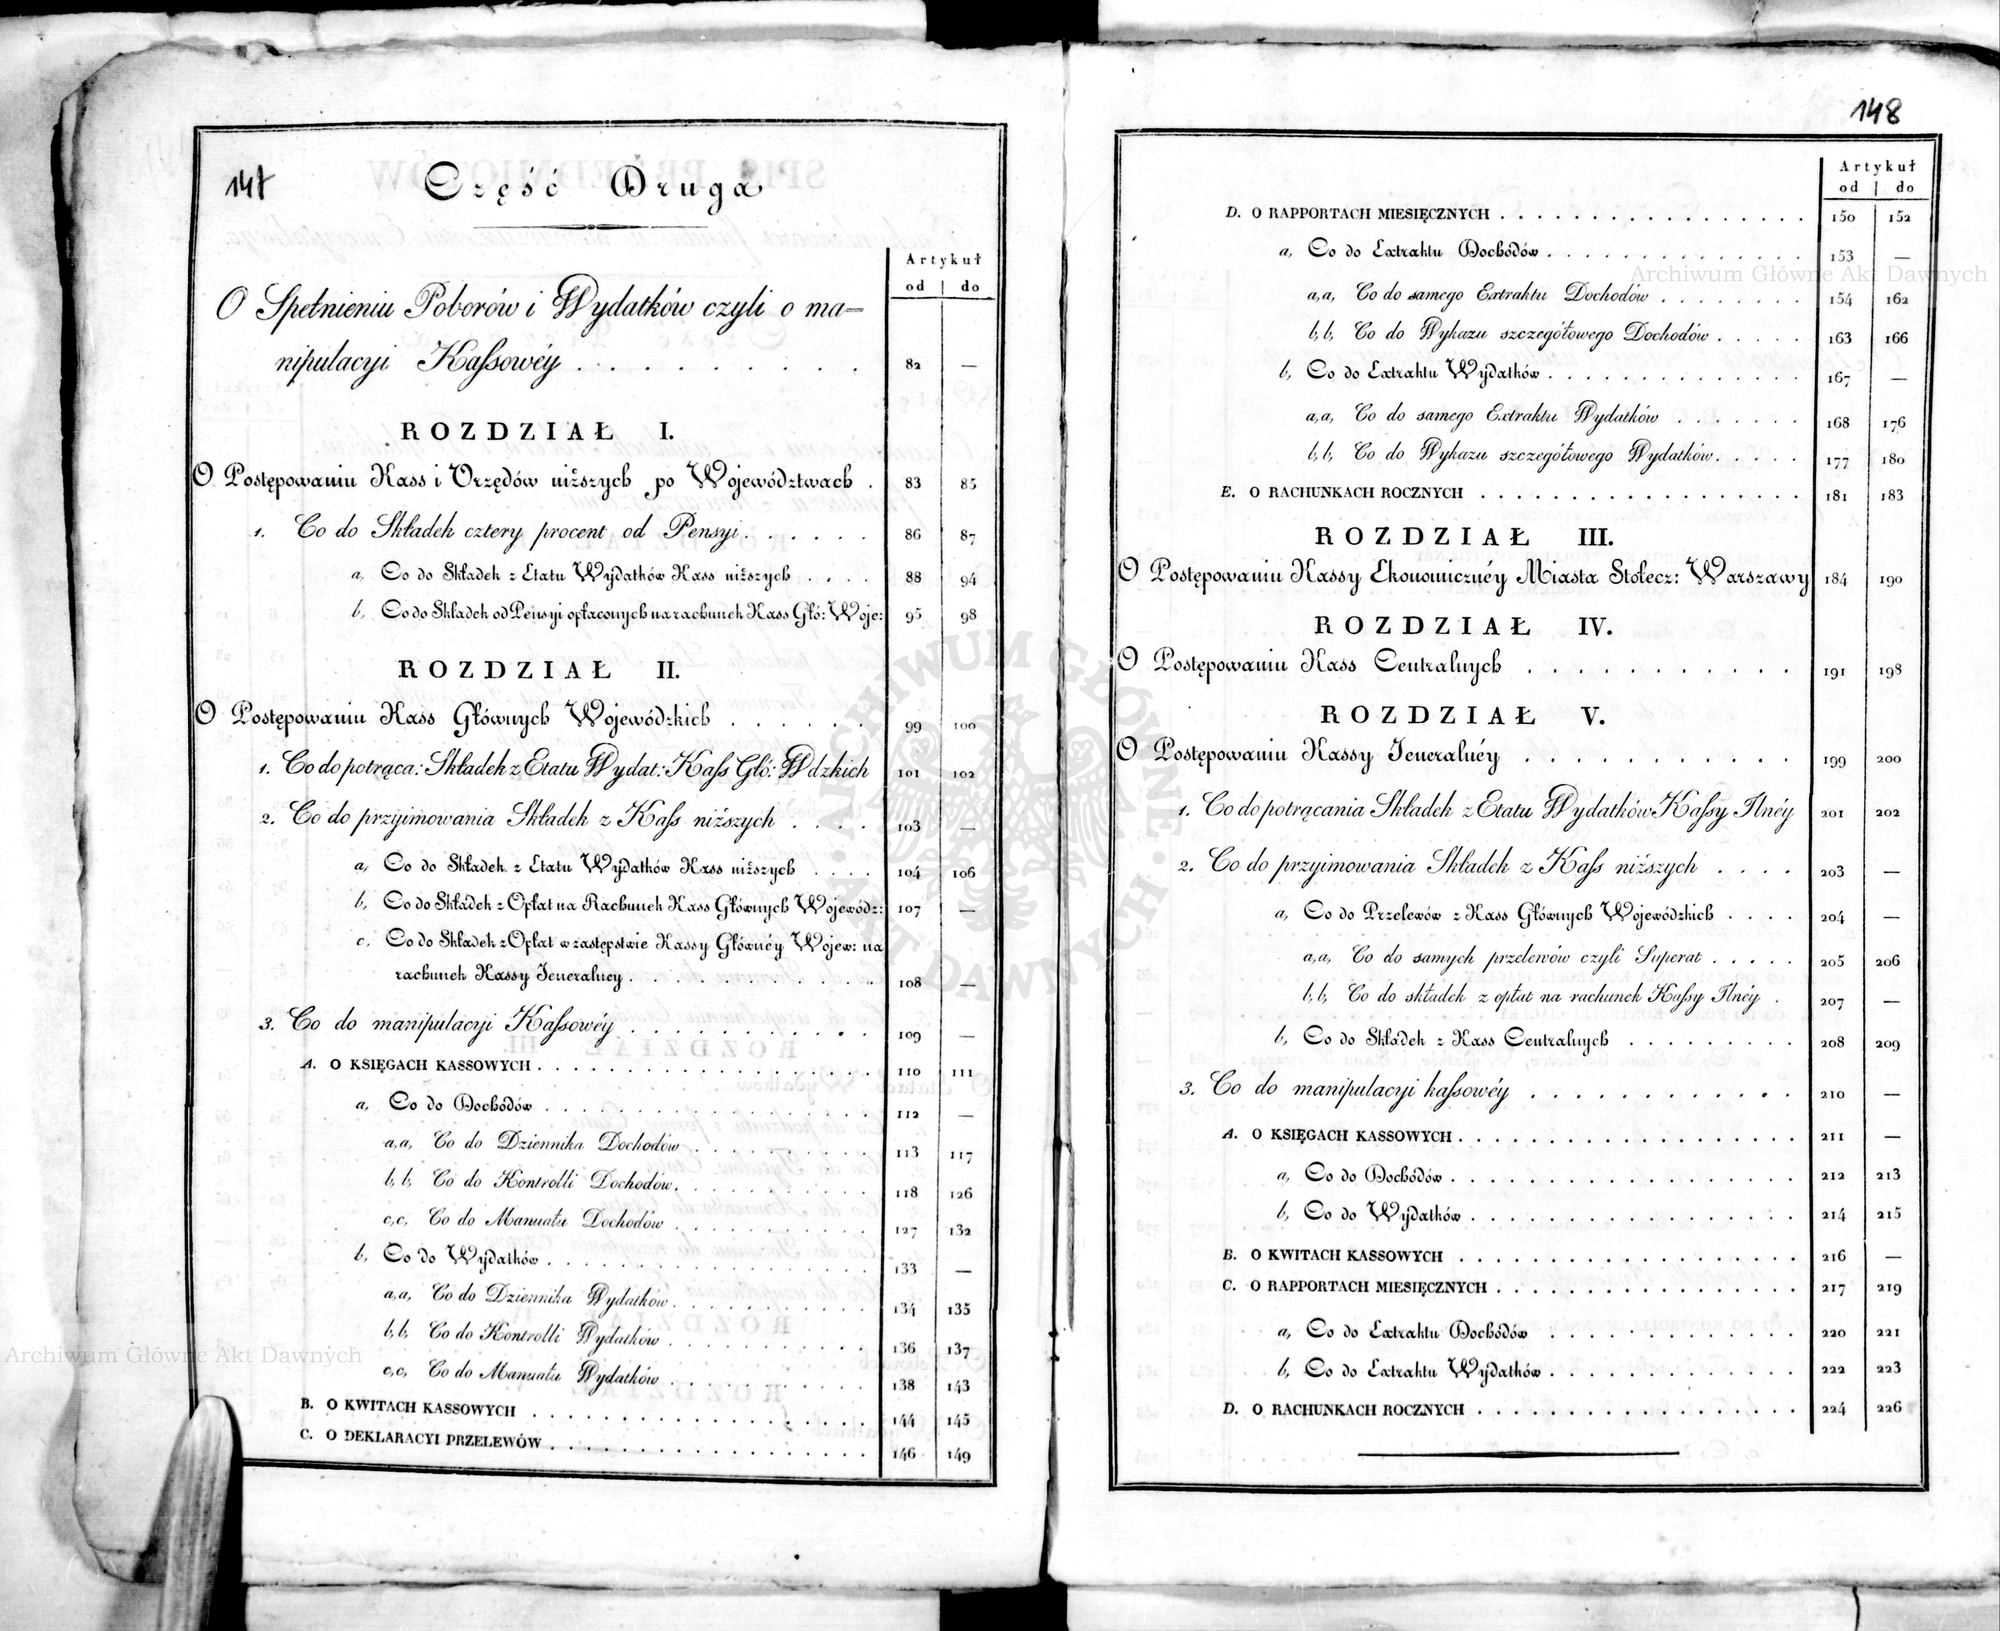 147
Część Druga
Artykuł
od | do
O Spełnieniu Poborów i Wydatków czyli o ma=
nipulacyi Kassowéy . . . . . . . . . 82 —
ROZDZIAŁ I.
O Postępowaniu Kass i Urzędów niższych po Województwach . 83 85
1. Co do Składek cztery procent od Pensyi . . . . . . 86 87
a, Co do Składek z Etatu Wydatków Kass niższych . . . . 88 94
b, Co do Składek od Pensyi opłaconych na rachunek Kass Głó: Woje: 95 98
ROZDZIAŁ II.
O Postępowaniu Kass Głównych Wojewódzkich . . . . . . 99 100
1. Co do potrąca: Składek z Etatu Wydat: Kass Głó: Wdzkich 101 102
2. Co do przyimowania Składek z Kass niższych . . . . 103 —
a, Co do Składek z Etatu Wydatków Kass niższych . . . . 104 106
b, Co do Składek z Opłat na Rachunek Kass Głównych Wojewódz: 107 —
c, Co do Składek z Opłat w zastępstwie Kassy Głównéy Wojew: na
rachunek Kassy Jeneralney . . . . . . . . . . . 108 —
3. Co do manipulacyi Kassowéy . . . . . . . . . . 109 —
A. O KSIĘGACH KASSOWYCH . . . . . . . . . . . . . . 110 111
a, Co do Dochodów . . . . . . . . . . . . . . 112 —
a,a, Co do Dziennika Dochodów . . . . . . . . . 113 117
b,b, Co do Kontrolli Dochodów . . . . . . . . . 118 126
c,c, Co do Manuału Dochodów . . . . . . . . . 127 132
b, Co do Wydatków . . . . . . . . . . . . . . 133 —
a,a, Co do Dziennika Wydatków . . . . . . . . . 134 135
b,b, Co do Kontrolli Wydatków . . . . . . . . . 136 137
c,c, Co do Manuału Wydatków . . . . . . . . . 138 143
B. O KWITACH KASSOWYCH . . . . . . . . . . . . . . 144 145
C. O DEKLARACYI PRZELEWÓW . . . . . . . . . . . . . 146 149
148
Artykuł
od | do
D. O RAPPORTACH MIESIĘCZNYCH . . . . . . . . . . . . . 150 152
a, Co do Extraktu Dochodów . . . . . . . . . . . . 153 —
a,a, Co do samego Extraktu Dochodów . . . . . . . 154 162
b,b, Co do Wykazu szczegółowego Dochodów . . . . . 163 166
b, Co do Extraktu Wydatków . . . . . . . . . . . . 167 —
a,a, Co do samego Extraktu Wydatków . . . . . . . 168 176
b,b, Co do Wykazu szczegółowego Wydatków . . . . . 177 180
E. O RACHUNKACH ROCZNYCH . . . . . . . . . . . . . . . 181 183
ROZDZIAŁ III.
O Postępowaniu Kassy Ekonomicznéy Miasta Stołecz: Warszawy 184 190
ROZDZIAŁ IV.
O Postępowaniu Kass Centralnych . . . . . . . . . . . 191 198
ROZDZIAŁ V.
O Postępowaniu Kassy Jeneralnéy . . . . . . . . . . . 199 200
1. Co do potrącania Składek z Etatu Wydatków Kassy Jlnéy 201 202
2. Co do przyimowania Składek z Kass niższych . . . . 203 —
a, Co do Przelewów z Kass Głównych Wojewódzkich . . . . 204 —
a,a, Co do samych przelewów czyli Superat . . . . . 205 206
b,b, Co do składek z opłat na rachunek Kassy Jlnéy . 207 —
b, Co do Składek z Kass Centralnych . . . . . . . . . 208 209
3. Co do manipulacyi kassowéy . . . . . . . . . . . . 210 —
A. O KSIĘGACH KASSOWYCH . . . . . . . . . . . . . . . . 211 —
a, Co do Dochodów . . . . . . . . . . . . . . . . 212 213
b, Co do Wydatków . . . . . . . . . . . . . . . . 214 215
B. O KWITACH KASSOWYCH . . . . . . . . . . . . . . . . 216 —
C. O RAPPORTACH MIESIĘCZNYCH . . . . . . . . . . . . . . 217 219
a, Co do Extraktu Dochodów . . . . . . . . . . . . 220 221
b, Co do Extraktu Wydatków . . . . . . . . . . . . 222 223
D. O RACHUNKACH ROCZNYCH . . . . . . . . . . . . . . . . 224 226
Archiwum Główne Akt Dawnych
Archiwum Główne Akt Dawnych
ARCHIWUM GŁÓWNE · AKT DAWNYCH ·